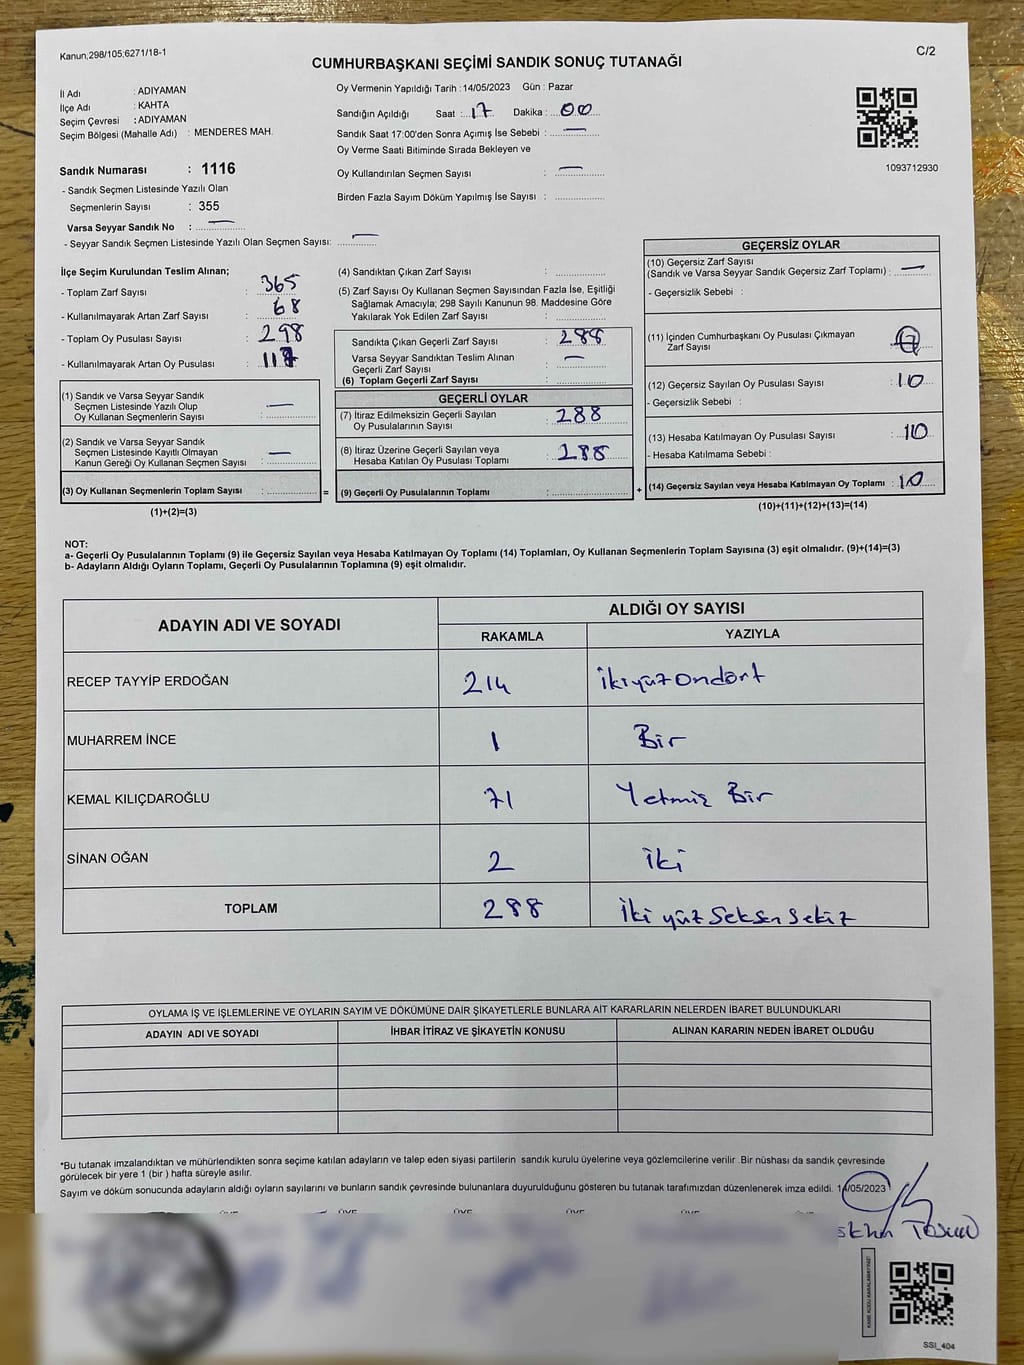 Kanun;298/105;6271/18-1
C/2
CUMHURBAŞKANI SEÇİMİ SANDIK SONUÇ TUTANAĞI
İl Adı : ADIYAMAN
İlçe Adı : KAHTA
Seçim Çevresi : ADIYAMAN
Seçim Bölgesi (Mahalle Adı) : MENDERES MAH.
Sandık Numarası : 1116
- Sandık Seçmen Listesinde Yazılı Olan
Seçmenlerin Sayısı : 355
Varsa Seyyar Sandık No : —
- Seyyar Sandık Seçmen Listesinde Yazılı Olan Seçmen Sayısı: —
Oy Vermenin Yapıldığı Tarih : 14/05/2023 Gün : Pazar
Sandığın Açıldığı Saat : 17 Dakika : 00
Sandık Saat 17:00'den Sonra Açımış İse Sebebi : —
Oy Verme Saati Bitiminde Sırada Bekleyen ve
Oy Kullandırılan Seçmen Sayısı : —
Birden Fazla Sayım Döküm Yapılmış İse Sayısı :
1093712930
İlçe Seçim Kurulundan Teslim Alınan;
- Toplam Zarf Sayısı : 365
- Kullanılmayarak Artan Zarf Sayısı : 68
- Toplam Oy Pusulası Sayısı : 298
- Kullanılmayarak Artan Oy Pusulası :
(1) Sandık ve Varsa Seyyar Sandık
Seçmen Listesinde Yazılı Olup
Oy Kullanan Seçmenlerin Sayısı : —
(2) Sandık ve Varsa Seyyar Sandık
Seçmen Listesinde Kayıtlı Olmayan
Kanun Gereği Oy Kullanan Seçmen Sayısı : —
(3) Oy Kullanan Seçmenlerin Toplam Sayısı :
(1)+(2)=(3)
(4) Sandıktan Çıkan Zarf Sayısı :
(5) Zarf Sayısı Oy Kullanan Seçmen Sayısından Fazla İse, Eşitliği
Sağlamak Amacıyla; 298 Sayılı Kanunun 98. Maddesine Göre
Yakılarak Yok Edilen Zarf Sayısı :
Sandıkta Çıkan Geçerli Zarf Sayısı : 288
Varsa Seyyar Sandıktan Teslim Alınan
Geçerli Zarf Sayısı : —
(6) Toplam Geçerli Zarf Sayısı :
GEÇERLİ OYLAR
(7) İtiraz Edilmeksizin Geçerli Sayılan
Oy Pusulalarının Sayısı : 288
(8) İtiraz Üzerine Geçerli Sayılan veya
Hesaba Katılan Oy Pusulası Toplamı : 288
= (9) Geçerli Oy Pusulalarının Toplamı :
GEÇERSİZ OYLAR
(10) Geçersiz Zarf Sayısı
(Sandık ve Varsa Seyyar Sandık Geçersiz Zarf Toplamı) : —
- Geçersizlik Sebebi :
(11) İçinden Cumhurbaşkanı Oy Pusulası Çıkmayan
Zarf Sayısı :
(12) Geçersiz Sayılan Oy Pusulası Sayısı : 10
- Geçersizlik Sebebi :
(13) Hesaba Katılmayan Oy Pusulası Sayısı :
- Hesaba Katılmama Sebebi :
+ (14) Geçersiz Sayılan veya Hesaba Katılmayan Oy Toplamı : 10
(10)+(11)+(12)+(13)=(14)
NOT:
a- Geçerli Oy Pusulalarının Toplamı (9) ile Geçersiz Sayılan veya Hesaba Katılmayan Oy Toplamı (14) Toplamları, Oy Kullanan Seçmenlerin Toplam Sayısına (3) eşit olmalıdır. (9)+(14)=(3)
b- Adayların Aldığı Oyların Toplamı, Geçerli Oy Pusulalarının Toplamına (9) eşit olmalıdır.
ADAYIN ADI VE SOYADI
ALDIĞI OY SAYISI
RAKAMLA YAZIYLA
RECEP TAYYİP ERDOĞAN 214 İkiyüzOndört
MUHARREM İNCE 1 Bir
KEMAL KILIÇDAROĞLU 71 Yetmiş Bir
SİNAN OĞAN 2 İki
TOPLAM 288 İki yüz Seksen Sekiz
OYLAMA İŞ VE İŞLEMLERİNE VE OYLARIN SAYIM VE DÖKÜMÜNE DAİR ŞİKAYETLERLE BUNLARA AİT KARARLARIN NELERDEN İBARET BULUNDUKLARI
ADAYIN ADI VE SOYADI İHBAR İTİRAZ VE ŞİKAYETİN KONUSU ALINAN KARARIN NEDEN İBARET OLDUĞU
*Bu tutanak imzalandıktan ve mühürlendikten sonra seçime katılan adayların ve talep eden siyasi partilerin sandık kurulu üyelerine veya gözlemcilerine verilir .Bir nüshası da sandık çevresinde
görülecek bir yere 1 (bir ) hafta süreyle asılır.
Sayım ve döküm sonucunda adayların aldığı oyların sayılarını ve bunların sandık çevresinde bulunanlara duyurulduğunu gösteren bu tutanak tarafımızdan düzenlenerek imza edildi. 14/05/2023
SSI_404